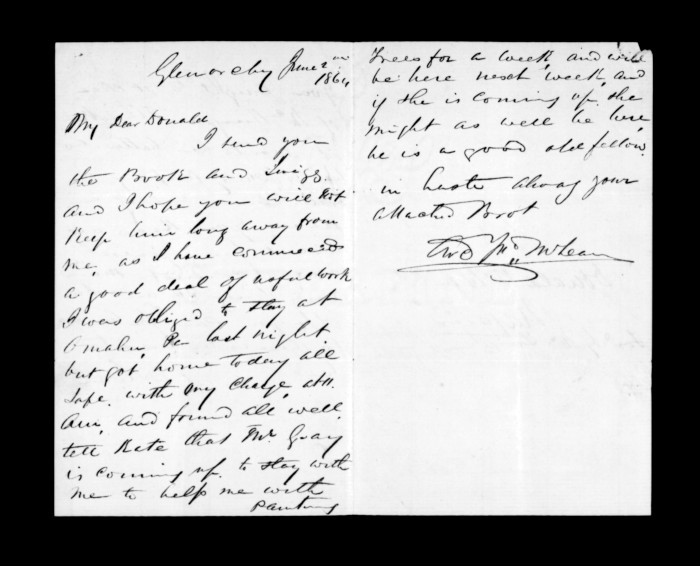 Glenorchy June 2nd
1864
My Dear Donald
I send you
the Book and
and I hope you will not
Keep him long away from
me, as I have commenced
a good deal of usful work
I was obliged to stay at
Omahu Pa last night
but got home today all
safe with my charge, at 11.
Am, and found all well.
tell Kate that Mr Gray
is coming up to stay with
me to help me with
planting
Trees for a week, and will
be here next week, and
if she is coming up, she
might as well be here,
he is a good old fellow.
in haste always your
attached Brot
McLean